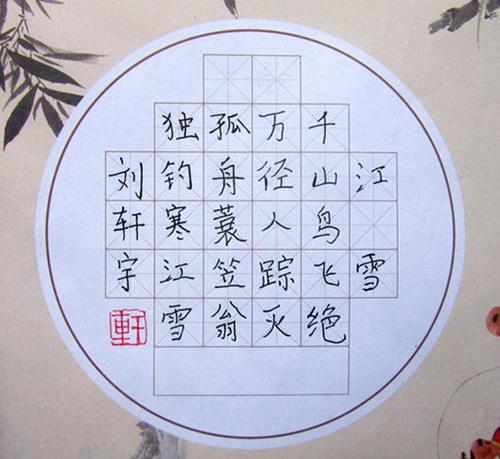 江雪
千山鸟飞绝
万径人踪灭
孤舟蓑笠翁
独钓寒江雪
刘轩宇
軒